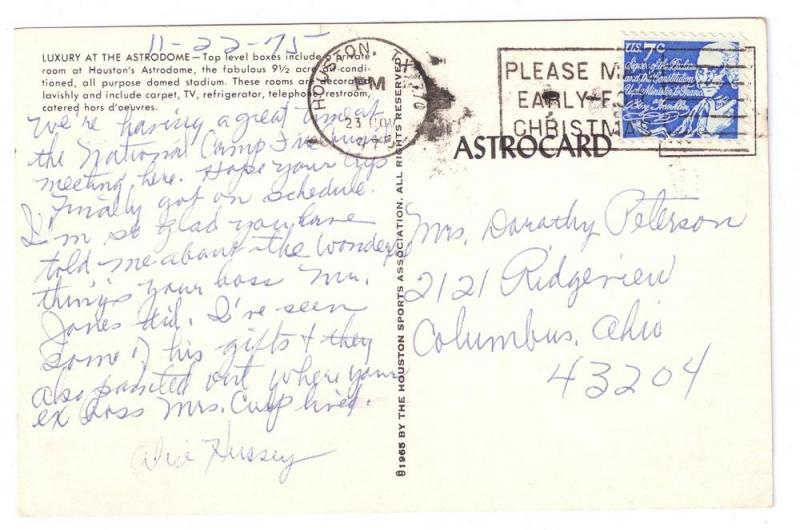 11-22-75
LUXURY AT THE ASTRODOME—Top level boxes include a private
room at Houston's Astrodome, the fabulous 9½ acre air-condi-
tioned, all purpose domed stadium. These rooms are decorated
lavishly and include carpet, TV, refrigerator, telephone, restroom,
catered hors d'oeuvres.
We're having a great time at
the National Camp Fire
meeting here. Hope your
Finally got on schedule.
I'm so glad you have
told me about the wonderful
things your boss Mr.
Jones did. I've seen
some of his gifts & they
also pointed out where your
ex boss Mrs. lived.
Alice Hussey
HOUSTON, TX
PM
23 NOV
PLEASE M
EARLY F
CHRISTMA
U.S. 7c
ASTROCARD
©1965 BY THE HOUSTON SPORTS ASSOCIATION. ALL RIGHTS RESERVED
Mrs. Dorothy Peterson
2121 Ridgeview
Columbus, Ohio
43204